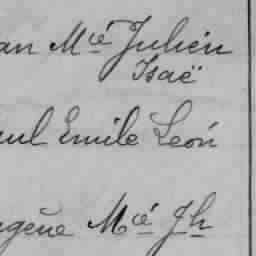 an Mcé Julien
Isaë
aul Emile León
ugène Mcé Jh